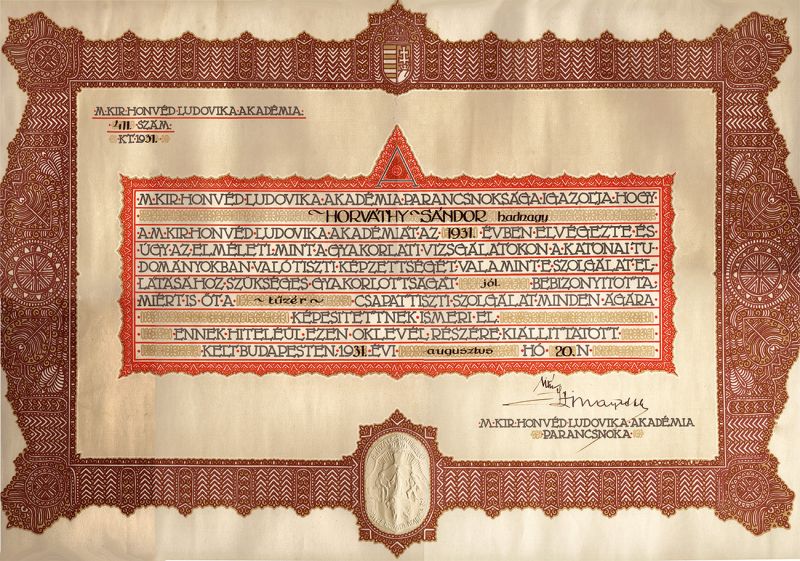 M·KIR·HONVÉD·LUDOVIKA·AKADÉMIA:
SZÁM·
KT·1931.
A
M·KIR·HONVÉD·LUDOVIKA·AKADÉMIA·PARANCSNOKSÁGA·IGAZOLJA·HOGY
HORVÁTHY SÁNDOR hadnagy
A·M·KIR·HONVÉD·LUDOVIKA·AKADÉMIÁT·AZ·1931.·ÉVBEN·ELVÉGEZTE·ÉS·
ÚGY·AZ·ELMÉLETI·MINT·A·GYAKORLATI·VIZSGÁLATOKON·A·KATONAI·TU-
DOMÁNYOKBAN·VALÓ·TISZTI·KÉPZETTSÉGÉT·VALAMINT·E·SZOLGÁLAT·EL-
LÁTÁSÁHOZ·SZÜKSÉGES·GYAKORLOTTSÁGÁT· jól. BEBIZONYÍTOTTA;
MIÉRT·IS·ŐT·A· ~tüzér~ CSAPATTISZTI·SZOLGÁLAT·MINDEN·ÁGÁRA·
KÉPESÍTETTNEK·ISMERI·EL·
ENNEK·HITELÉÜL·EZEN·OKLEVÉL·RÉSZÉRE·KIÁLLÍTTATOTT·
KELT·BUDAPESTEN·1931·ÉVI· augusztus HÓ· 20.·N·
·M·KIR·HONVÉD·LUDOVIKA·AKADÉMIA
·PARANCSNOKA·